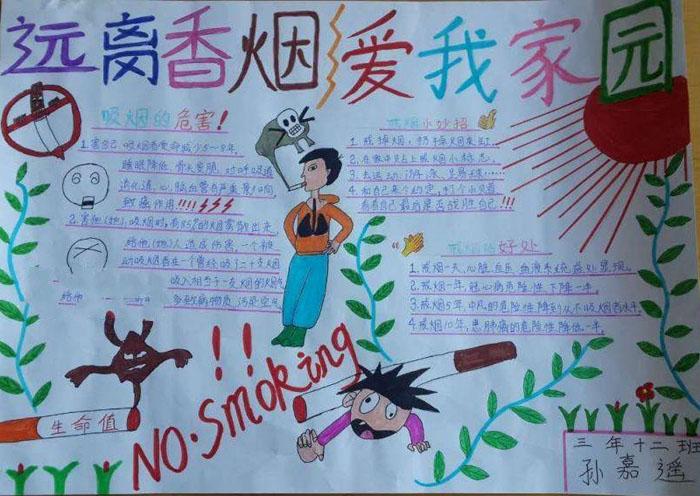 远离香烟爱我家园
吸烟的危害!
1.害自己,吸烟者寿命减少5~8年.
睡眠降低.骨头变脆.对呼吸道
消化道,心脑血管有严重
致癌作用!!!
2.害他(她),吸烟时,有85%的烟雾散出去.
给他(她)人造成伤害.一个被
动吸烟者在一个曾经吸二十支烟
吸入相当于一支烟的烟气
多致病物质,污染空气
戒烟小妙招
1.戒掉烟,扔掉烟灰缸.
2.在家中贴上戒烟小标志.
3.去运动,游泳,
4.和自己来个约定,
看看自己最后是否战胜自己!!!
戒烟的好处
1.戒烟一天,心脏血压,血液系统益处显现.
2.戒烟1年,冠心病危险性下降一半.
3.戒烟5年,中风的危险性降到从不吸烟者水平.
4.戒烟10年,患肺癌的危险性降低一半.
!!
NO.Smoking
生命值
三年十二班
孙嘉遥